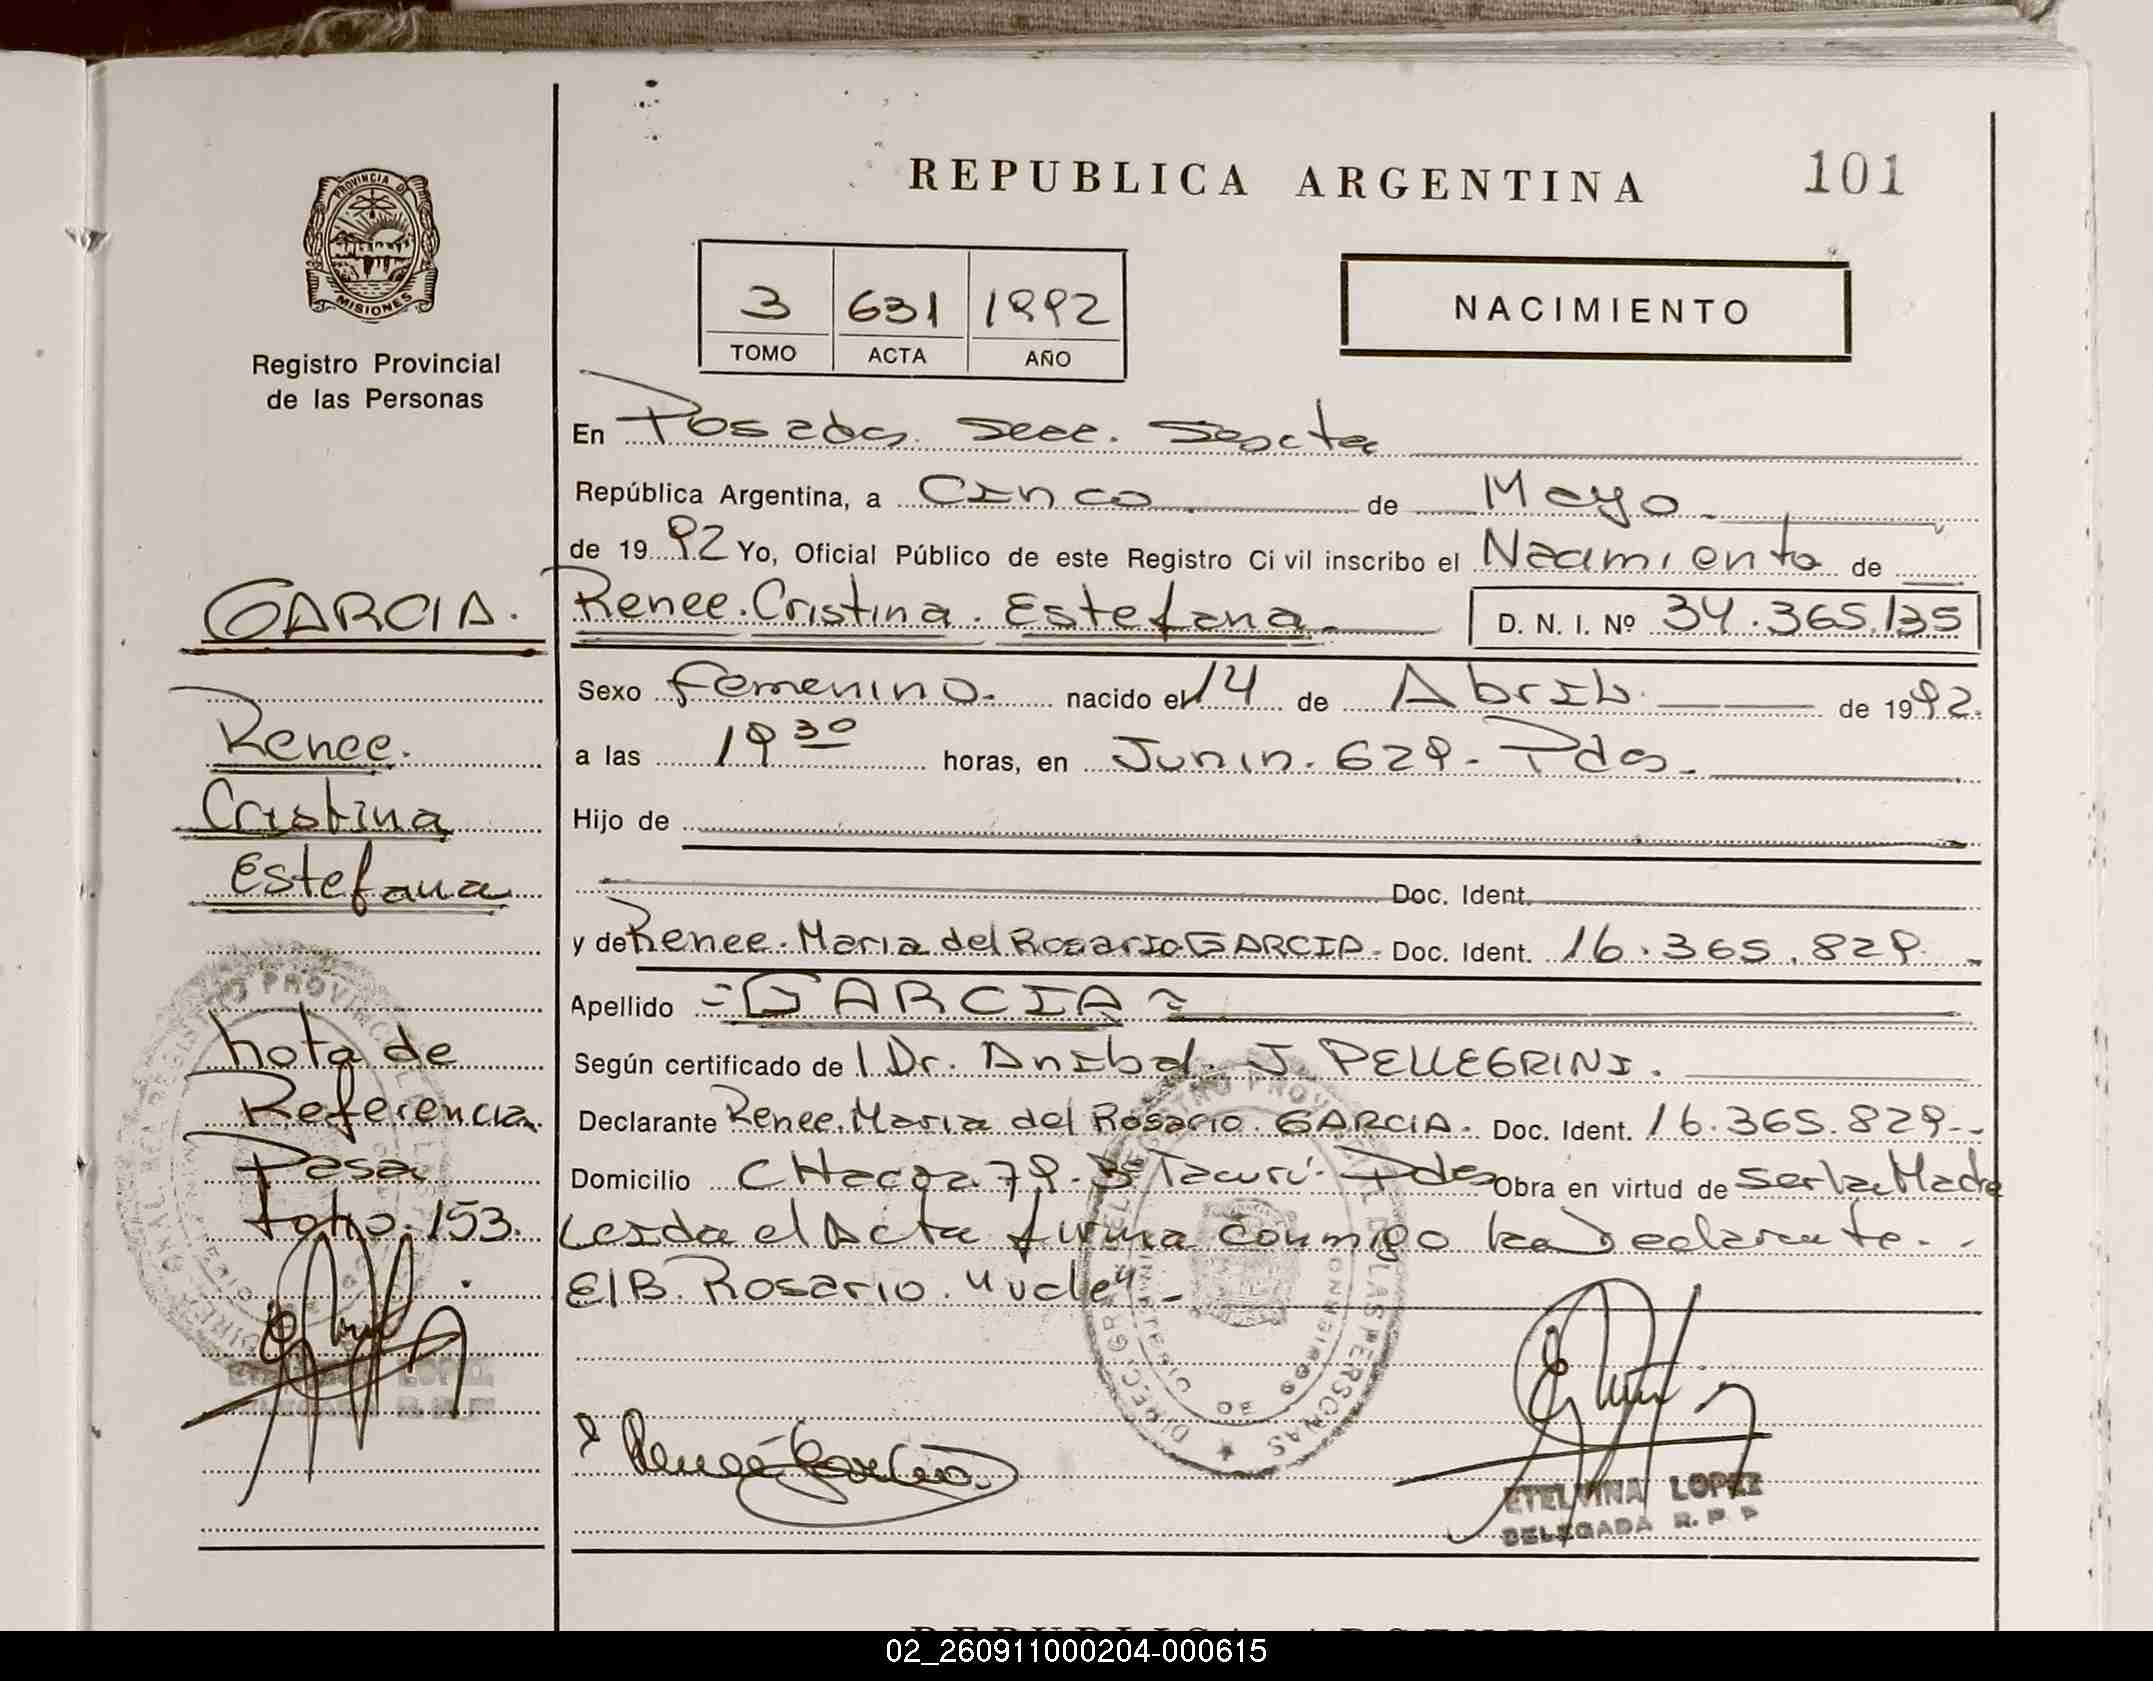 REPUBLICA ARGENTINA
101
PROVINCIA DE
MISIONES
Registro Provincial
de las Personas
3 631 1992
TOMO ACTA AÑO
NACIMIENTO
En Posadas. Secc. Sexta
República Argentina, a Cinco de Mayo
de 19 92 Yo, Oficial Público de este Registro Civil inscribo el Nacimiento de
Renee. Cristina. Estefana. D. N. I. Nº 34.365.135
Sexo Femenino. nacido el 14 de Abril. de 1992.
a las 19 30 horas, en Junin. 629. Pdas.
Hijo de
Doc. Ident.
y de Renee. Maria del Rosario GARCIA. Doc. Ident. 16.365.829.
Apellido =GARCIA=
Según certificado de Dr. Anibal. J. PELLEGRINI.
Declarante Renee. Maria del Rosario. GARCIA. Doc. Ident. 16.365.829.
Domicilio CHacra 79. Bº Tacuru. Pdas Obra en virtud de ser la Madre
Leida el Acta firma conmigo la Declarante.
E/B. Rosario. "vale".
GARCIA.
Renee.
Cristina
Estefana
Nota de
Referencia
Pasa
Folio. 153.
Reneé García
ETELVINA LOPEZ
DELEGADA R. P. P
02_260911000204-000615